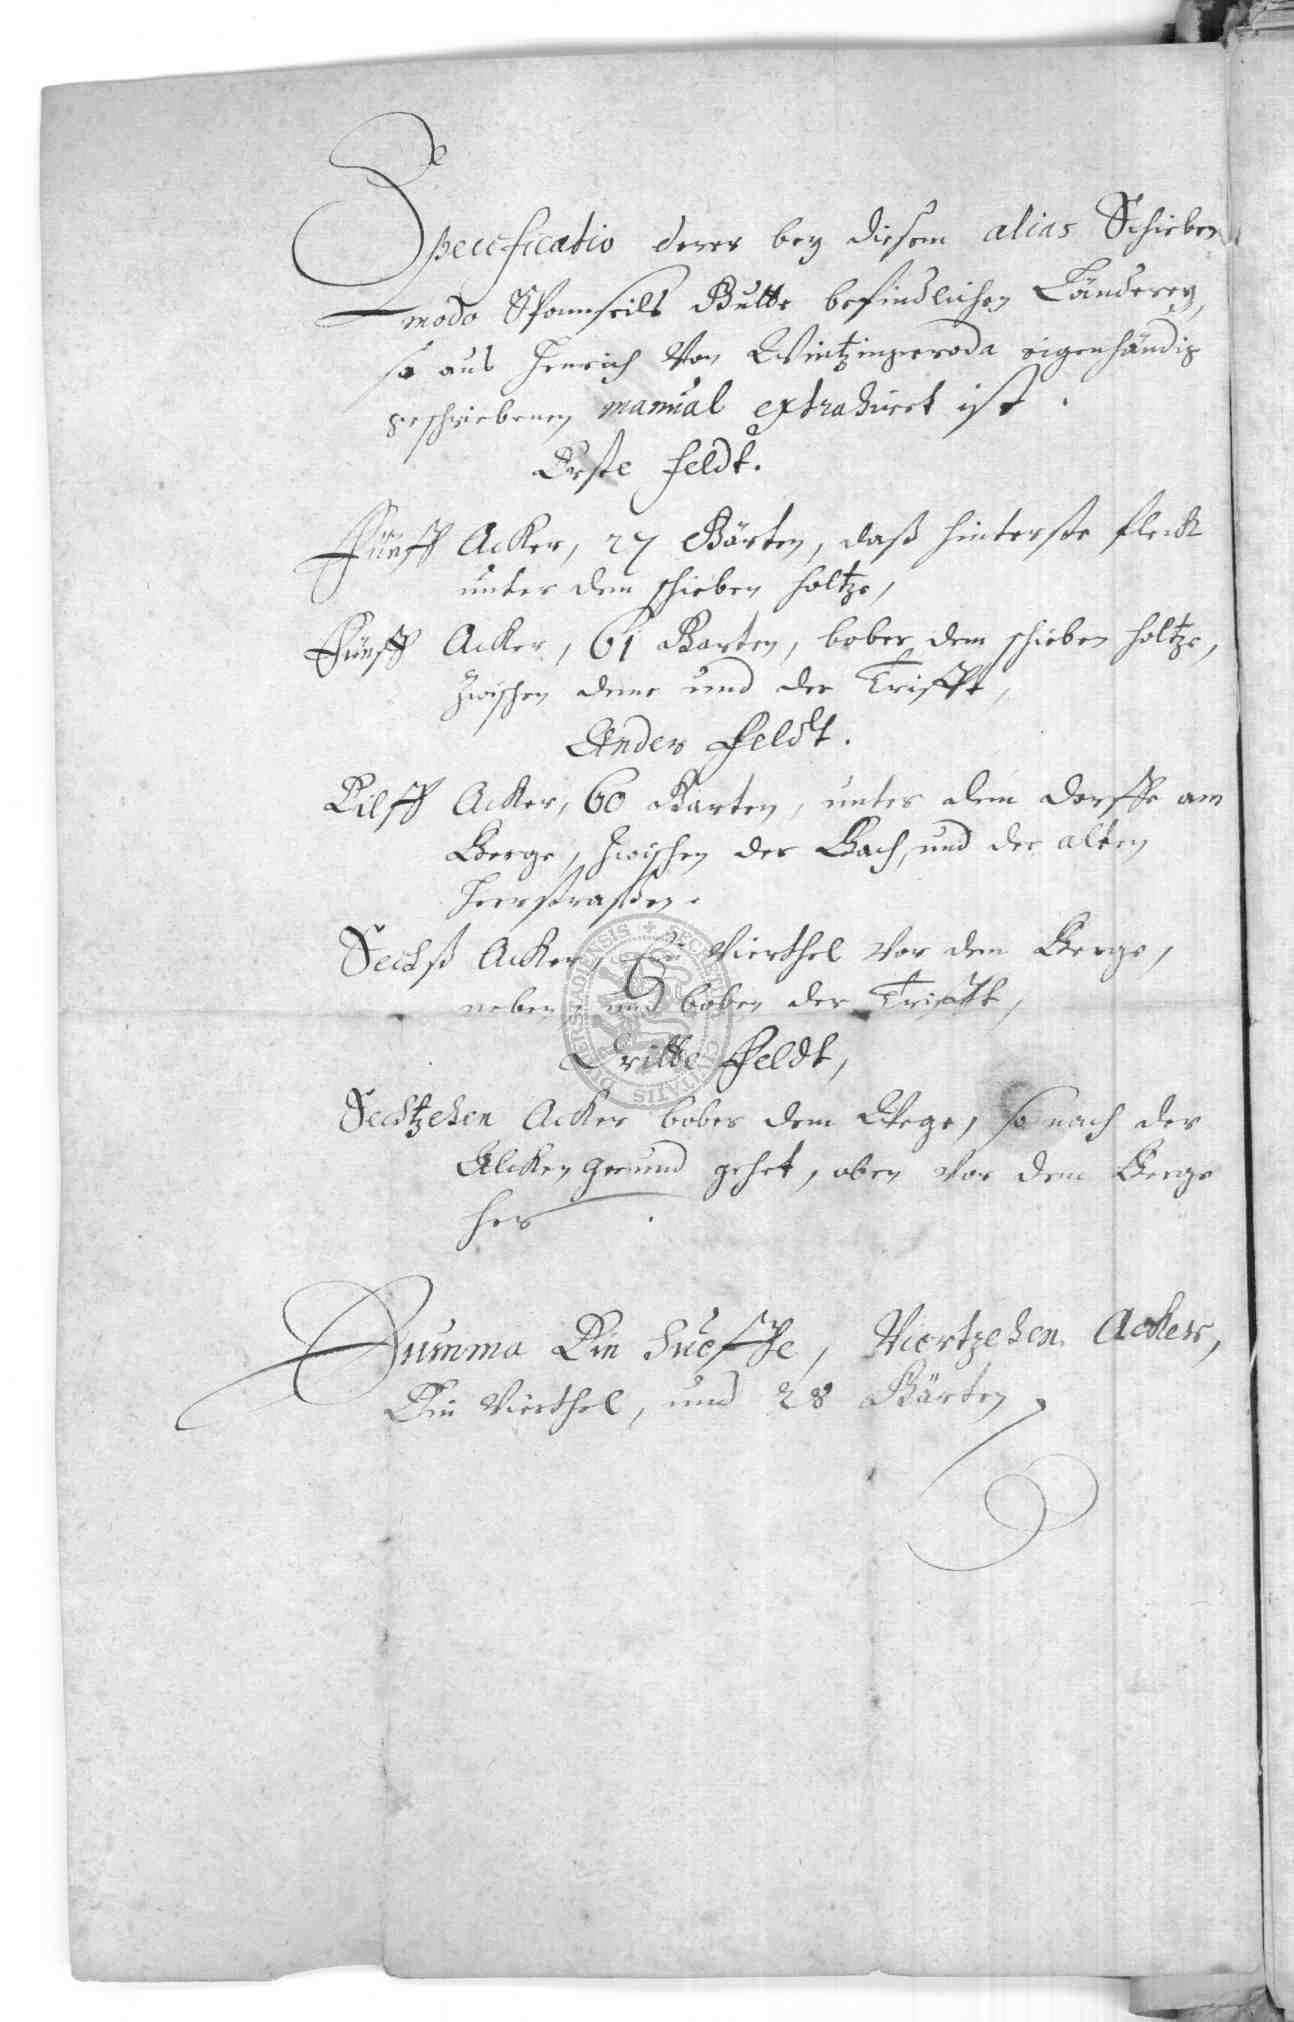 Specificatio derer bey diesem alias Schieben
modo Spannseils Gutte befindlichen Länderey,
so aus Henrich Von Wintzingeroda eigenhändig
geschriebenen manual extrahiret ist.
Erste Feldt.
Fünff Acker, 27 Gärten, daß hinterste fleck
unter dem schieben holtze,
Fünff Acker, 61 Garten, bober dem schieben holtze,
zwischen deme und der Trifft,
Ander Feldt.
Eilff Acker, 60 Garten, unter dem dorffe am
Berge, zwischen der Bach, und der alten
Heerstraßen.
Sechß Acker, Ein Vierthel vor dem Berge,
neben und boben der Trifft,
Dritte Feldt,
Sechtzehen Acker bober dem Wege, so nach der
Alcken grund gehet, oben vor dem Berge
her.
Summa Ein Hueffe, Viertzehen Acker,
Ein Vierthel, und 28 Gärten.
SECRETUM CIVITATIS DUDERSTADIENSIS